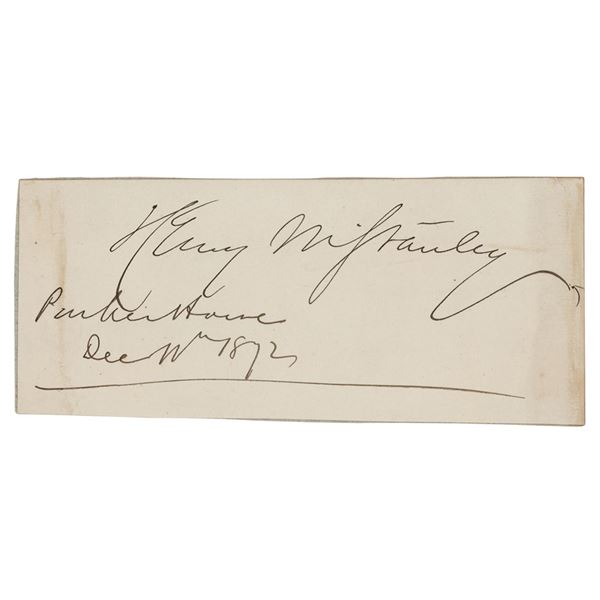 Henry M Stanley
Parker House
Dec 11th 1872